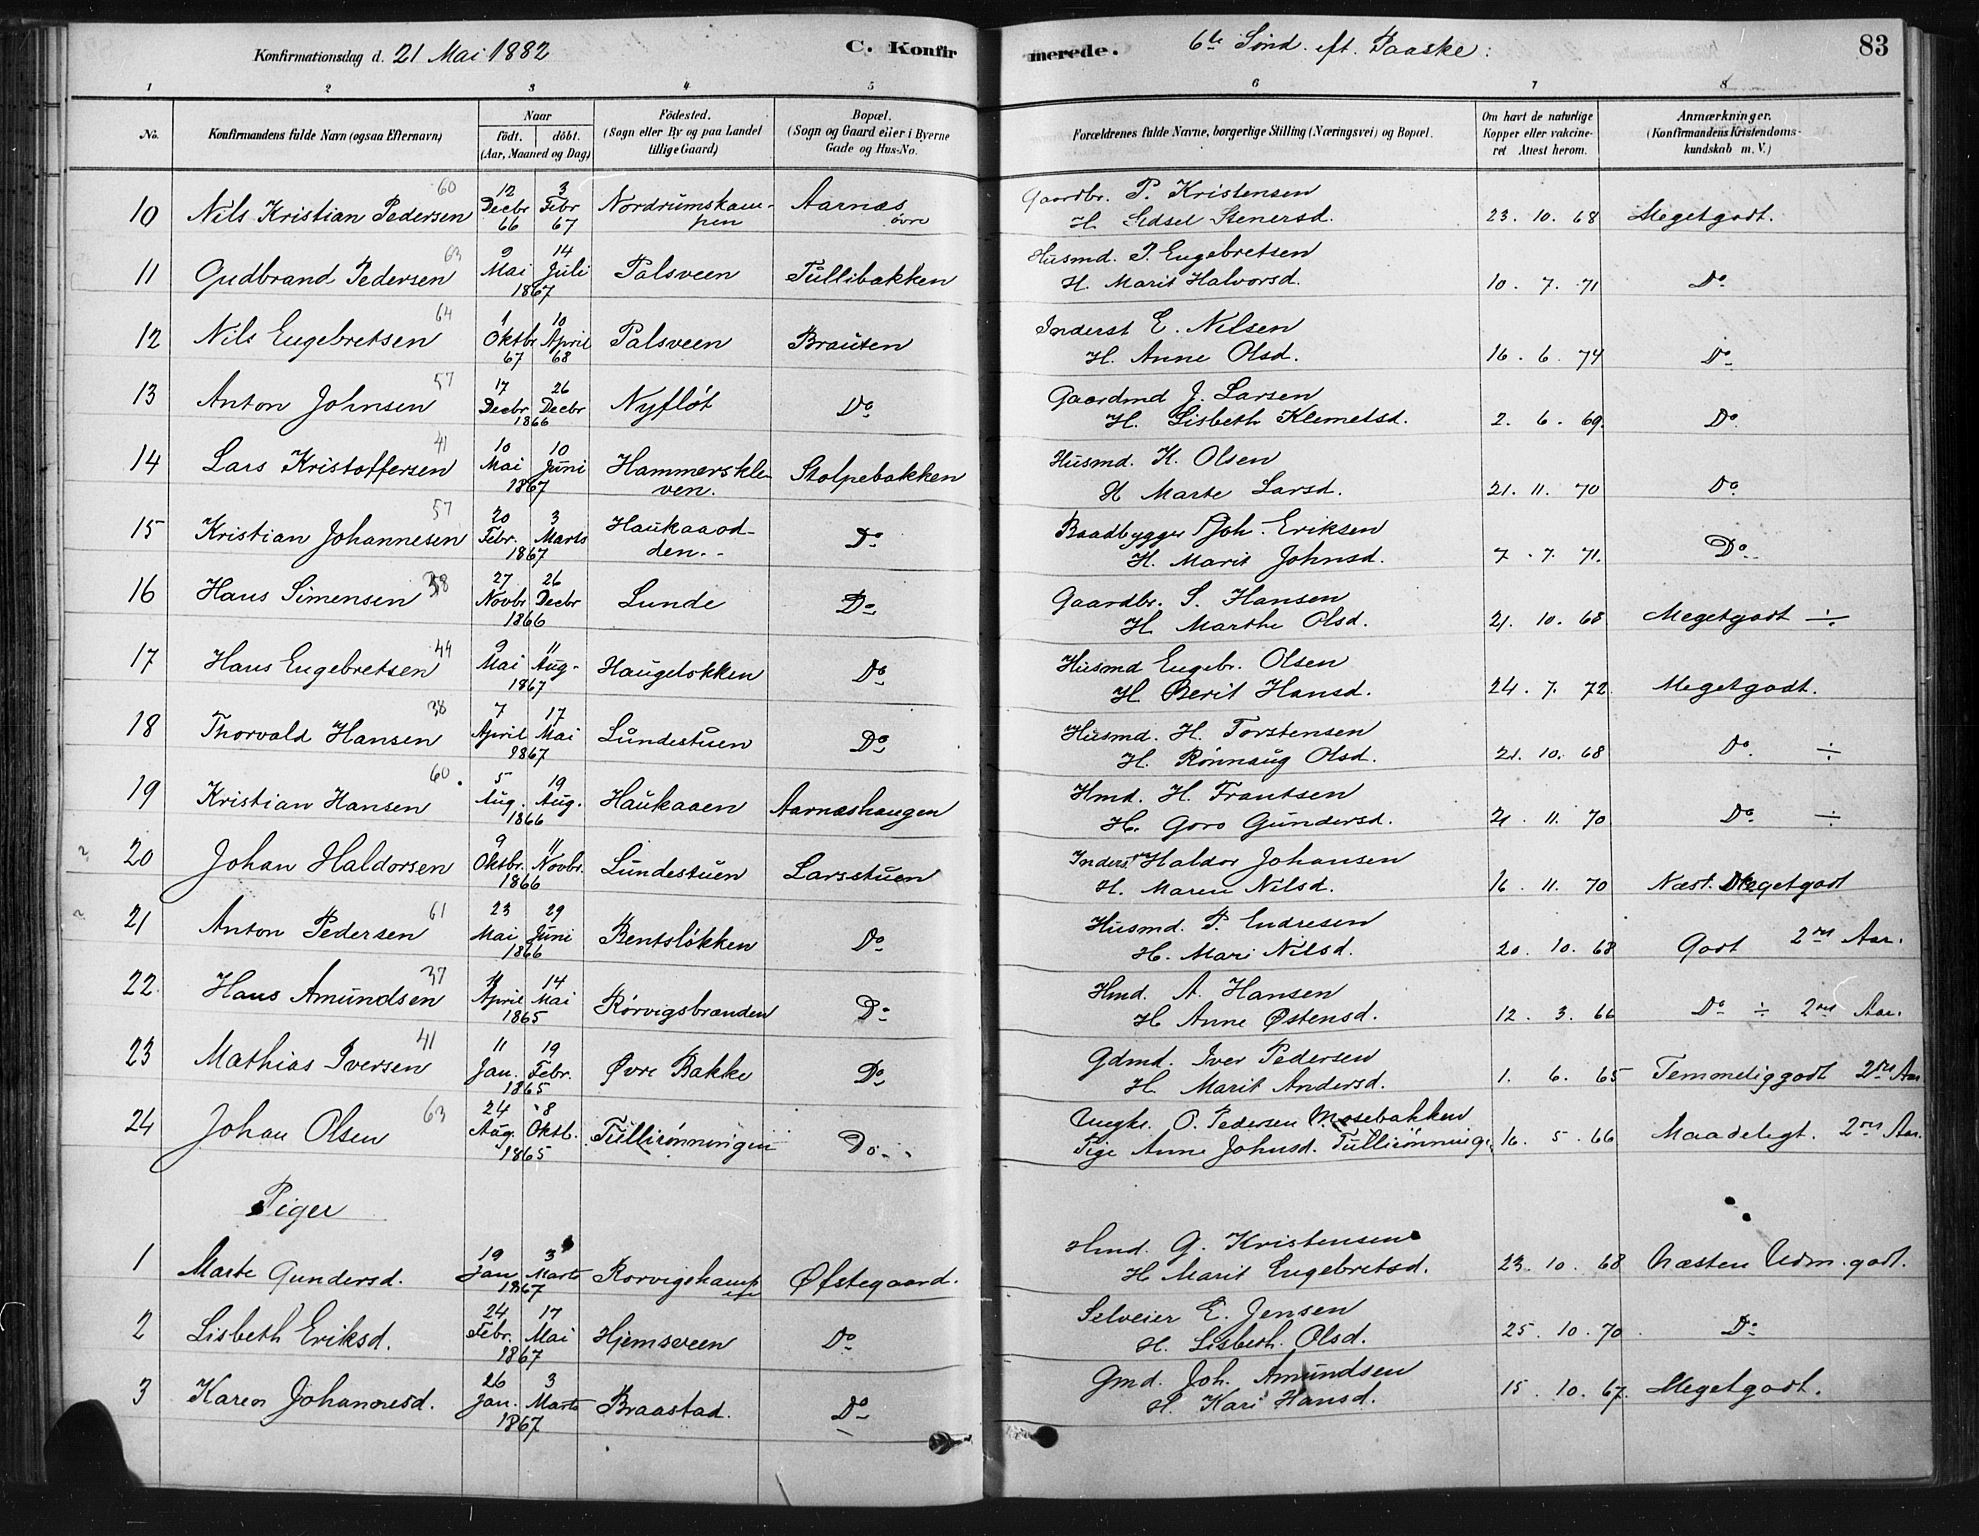 Konfirmationsdag d. 21 Mai 1882
C. Konfirmerede.
6te Sönd. eft. Paaske.
83
1 2 3 4 5 6 7 8
No.
Konfirmandens fulde Navn (ogsaa Efternavn)
Naar födt. döbt. (Aar, Maaned og Dag)
Födested. (Sogn eller By og paa Landet tillige Gaard)
Bopæl. (Sogn og Gaard eller i Byerne Gade og Hus-No.
Forældrenes fulde Navne, borgerlige Stilling (Næringsvei) og Bopæl.
Om havt de naturlige Kopper eller vakcineret Attest herom.
Anmærkninger. (Konfirmandens Kristendomskundskab m. V.)
10 Nils Kristian Pedersen 60 12 Decbr 66 3 Febr 67 Nordrumskampen Aarnæs övre Gaardbr. P. Kristensen
H. Sidsel Stenersd. 23. 10. 68 Megetgodt.
11 Gudbrand Pedersen 63 9 Mai 14 Juli 1867 Palsveen Tullibakken Husmd. P. Engebretsen
H. Marit Halvorsd. 10. 7. 71 Do
12 Nils Engebretsen 64 1 Oktbr 67 10 April 68 Palsveen Brauten Inderst E. Nilsen
H. Anne Olsd. 16. 6. 74 Do
13 Anton Johnsen 57 17 Decbr 26 Decbr 1866 Nyflöt Do Gaardmd J. Larsen
H. Lisbeth Klemetsd. 2. 6. 69. Do
14 Lars Kristoffersen 41 10 Mai 10 Juni 1867 Hammerskleven. Stolpebakken Husmd. K. Olsen
H Marte Larsd. 21. 11. 70 Do
15 Kristian Johannesen 57 20 Febr. 3 Marts 1867 Haukaaodden. Do Baadbygger Joh. Eriksen
H. Marit Johnsd. 7. 7. 71. Do
16 Hans Simensen 38 27 Novbr 26 Decbr 1866 Lunde Do Gaardbr. S. Hansen
H. Marthe Olsd. 21. 10. 68 Megetgodt ÷
17 Hans Engebretsen 44 9 Mai 11 Aug. 1867 Haugelökken Do Husmd Engebr. Olsen
H Berit Hansd. 24. 7. 72 Megetgodt.
18 Thorvald Hansen 38 7 April 17 Mai 1867 Lundestuen Do Husmd. H. Torstensen
H. Rönnaug Olsd. 21. 10. 68 Do ÷
19 Kristian Hansen 60 5 Aug. 19 Aug. 1866 Haukaaen Aarnæshaugen Hmd. H. Frantsen
H. Goro Gundersd. 21. 11. 70 Do ÷
20 Johan Haldorsen 9 Oktbr. 11 Novbr. 1866 Lundestuen Larsstuen Inderst Haldor Johansen
H. Maren Nilsd. 16. 11. 70 Næst. Megetgodt
21 Anton Pedersen 61 23 Mai 29 Juni 1866 Bentslökken Do Husmd. P. Endresen
H. Mari Nilsd. 20. 10. 68 Godt 2det Aar.
22. Hans Amundsen 37 4 April 14 Mai 1865 Rörvigsbrænden Do Hmd. A. Hansen
H Anne Östensd. 12. 3. 66 Do ÷ 2det Aar.
23 Mathias Iversen 41 11 Jan. 19 Febr. 1865 Övre Bakke Do Gdmd. Iver Pedersen
H. Marit Andersd. 1. 6. 65 Temmeliggodt 2det Aar
24 Johan Olsen 63 24 Aug. 8 Oktb. 1865 Tullirönningen Do. Ungkr. O. Pedersen Mosebakken
Pige Anne Johnsd. Tullirönning. 16. 5. 66 Maadeligt. 2det Aar.
Piger
1 Marte Gundersd. 19 Jan. 3 Marts 1867 Rorvigskampen Öfstegaard. Hmd. G. Kristensen
H Marit Engebretsd. 23. 10. 68 Næsten Udm. godt.
2 Lisbeth Eriksd. 24 Febr. 17 Mai 1867 Hjemsveen Do Selveier E. Jensen
H. Lisbeth Olsd. 25. 10. 70 Do
3 Karen Johannesd. 26 Jan. 3 Marts 1867 Braastad. Do Gmd. Joh. Amundsen
H. Kari Hansd. 15. 10. 67. Megetgodt.